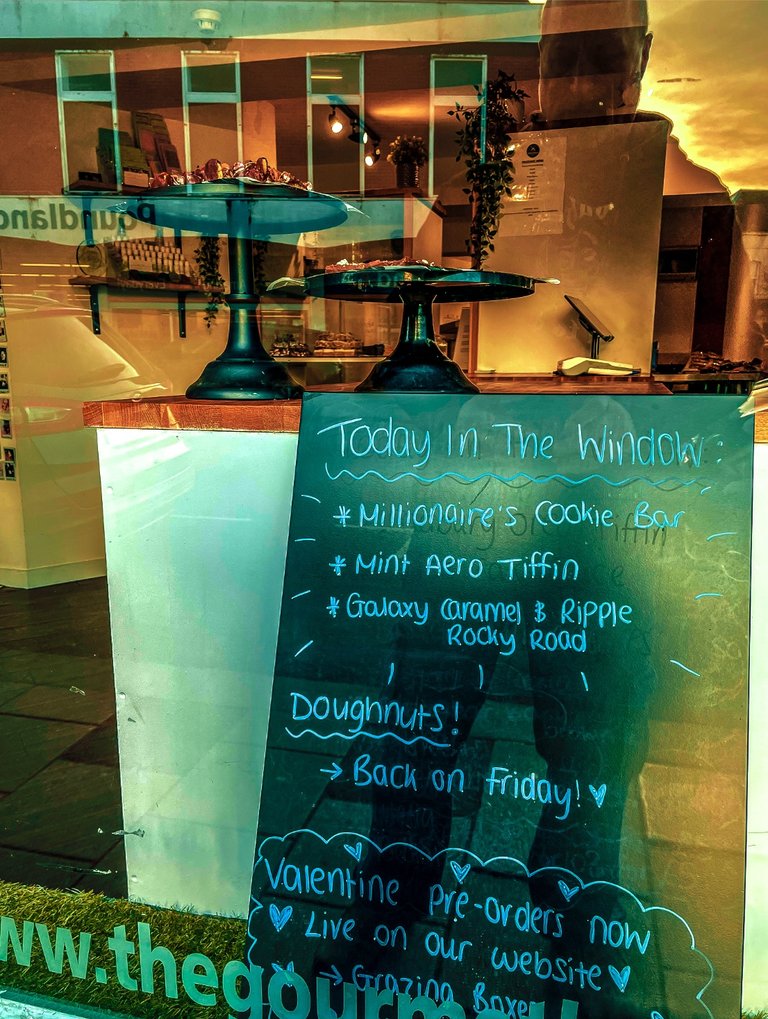 Poundland
Today In The Window:
* Millionaire's Cookie Bar
* Mint Aero Tiffin
* Galaxy Caramel & Ripple
Rocky Road
Doughnuts!
→ Back on Friday! ♥
Valentine pre-orders now
♥ Live on our website ♥
→ Grazing Boxes
www.thegourm